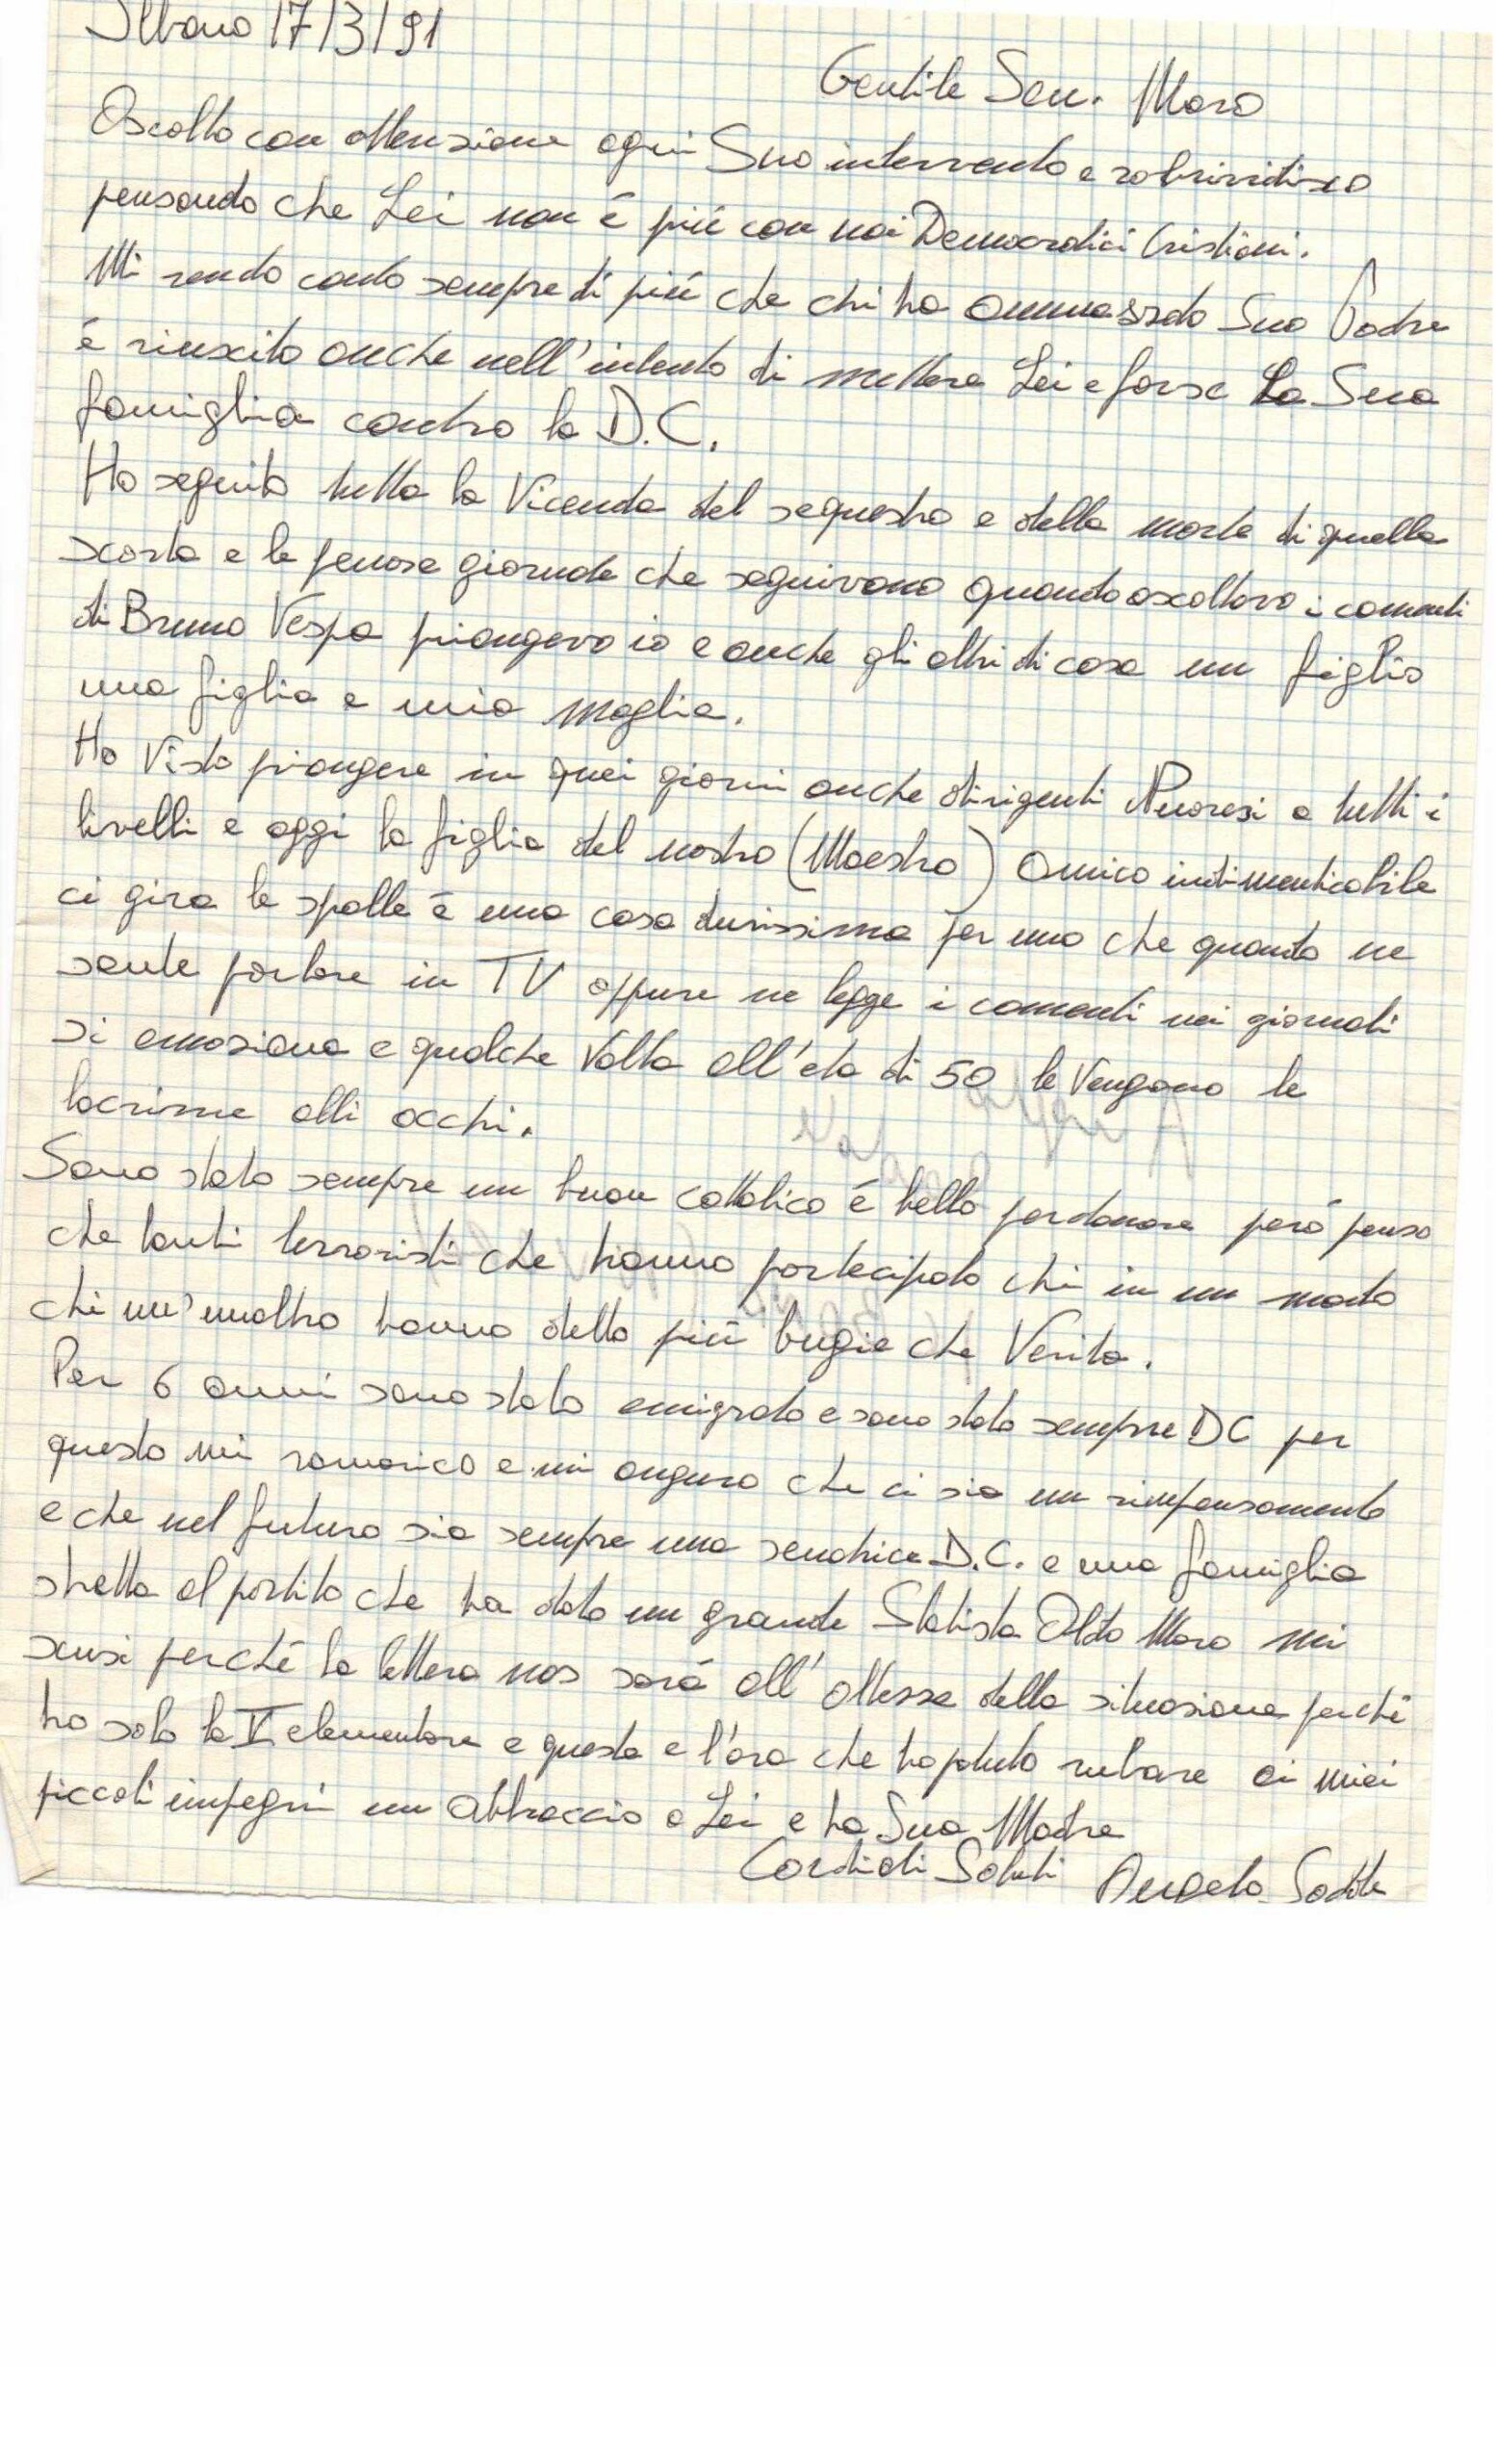 Illorai 17/3/91
Gentile Sen. Moro
Ascolto con attenzione ogni Suo intervento e rabrividisco
pensando che Lei non é piú con noi Democratici Cristiani.
Mi rendo conto sempre di piú che chi ha ammassato Suo Padre
é riuscito anche nell'intento di mettere Lei e forse La Sua
famiglia contro la D.C.
Ho seguito tutta la Vicenda del sequestro e della morte di quella
scorta e le penose giornate che seguivano quando ascoltavo i comenti
di Bruno Vespa piangevo io e anche gli altri di casa un figlio
una figlia e mia moglie.
Ho Visto piangere in quei giorni anche dirigenti Nuoresi a tutti i
livelli e oggi la figlia del nostro (Maestro) Amico indimenticabile
ci gira le spalle é una cosa durissima per uno che quando ne
sente parlare in TV oppure ne legge i comenti nei giornali
si emoziona e qualche Volta all'eta di 50 le Vengono le
lacrime alli occhi.
Sono stato sempre un buon cattolico é bello perdonare peró penso
che tanti terroristi che hanno partecipato chi in un modo
chi un'unaltro hanno detto piú bugie che Verita.
Per 6 anni sono stato emigrato e sono stato sempre DC per
questo mi ramarico e mi auguro che ci sia un rimpensamento
e che nel futuro sia sempre una senatrice D.C. e una famiglia
stretta al partito che ha dato un grande Statista Aldo Moro mi
scusi perché la lettera nos sará all'altessa della situasione perché
ho solo la V elementare e questa e l'ora che ho potuto rubare ai miei
piccoli impegni un abbraccio a Lei e ha Sua Madre
Cordiali Saluti Angelo